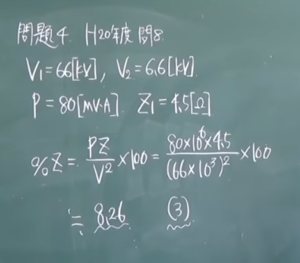 問題4. H20年度 問8.
V₁=66[kV], V₂=6.6[kV]
P=80[MV·A] Z₁=4.5[Ω]
%Z = PZ/V² ×100 = 80×10⁶×4.5/(66×10³)² ×100
≒ 8.26 (3)